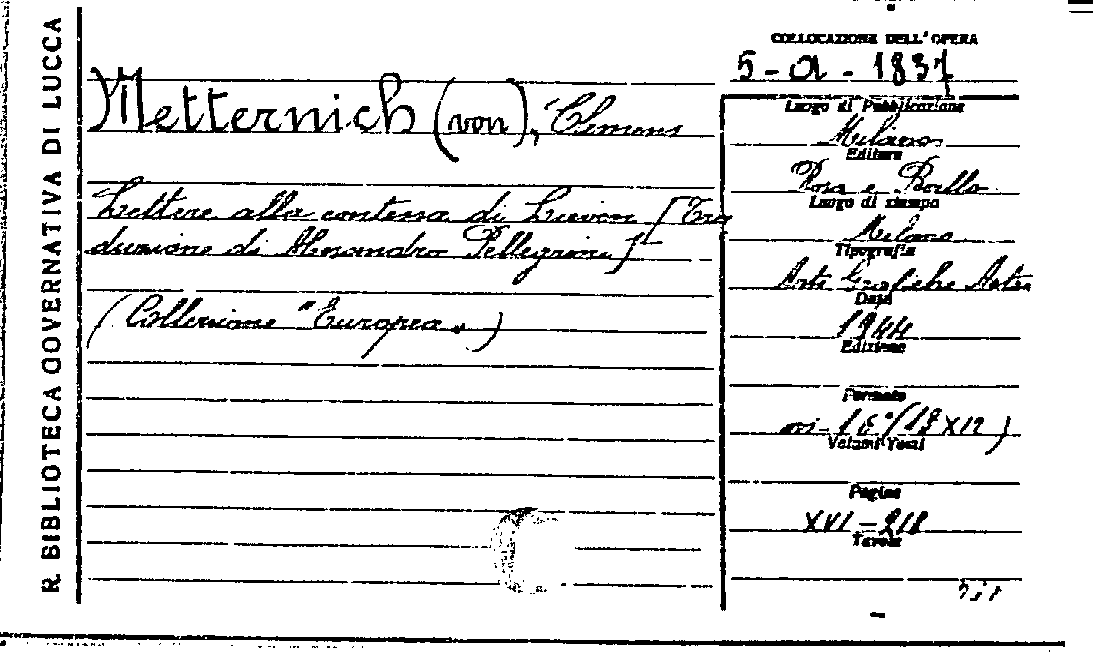 R. BIBLIOTECA GOVERNATIVA DI LUCCA
COLLOCAZIONE DELL'OPERA
5 - a - 1837
Metternich (von), Clemens
Lettere alla contessa di Lieven [Tra
duzione di Alessandro Pellegrini]
(Collezione "Europea")
Luogo di Pubblicazione
Milano
Editore
Rosa e Ballo
Luogo di stampa
Milano
Tipografia
Arti Grafiche
Data
1944
Edizione
Formato
in-16°(17X12)
Volumi Totali
Pagine
XVI-218
Tavole